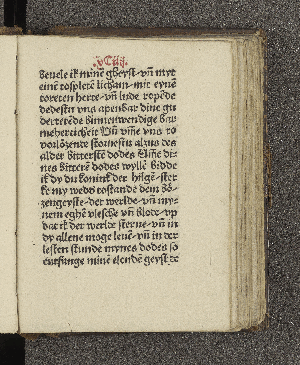 beuele ik minē gheyst· vñ myt
eine̅ tospleten̄ licham· mit eyne̅
toreten herte· vñ lude ropēde
dedestu vns apenbar dine gu
derterēde binnenwendige bar
meherticheit Uñ vm̄e vns to
vorlözende storuestu alzus des
alder bitterste̅ dodes Vm̄e di-
nes bittere̅ dodes wylle̅ bidde
ik dy du konink der hilgē· ster-
ke my wedd̓ tostande dem bö-
zengeyste· der werlde· vñ my-
nem eghē vlesche vñ blode· vp
dat ik der werlt sterue· vñ in
dy allene moge leue̅· vñ in der
lesten stunde mynes dodes so
entfange minē elendē geyst